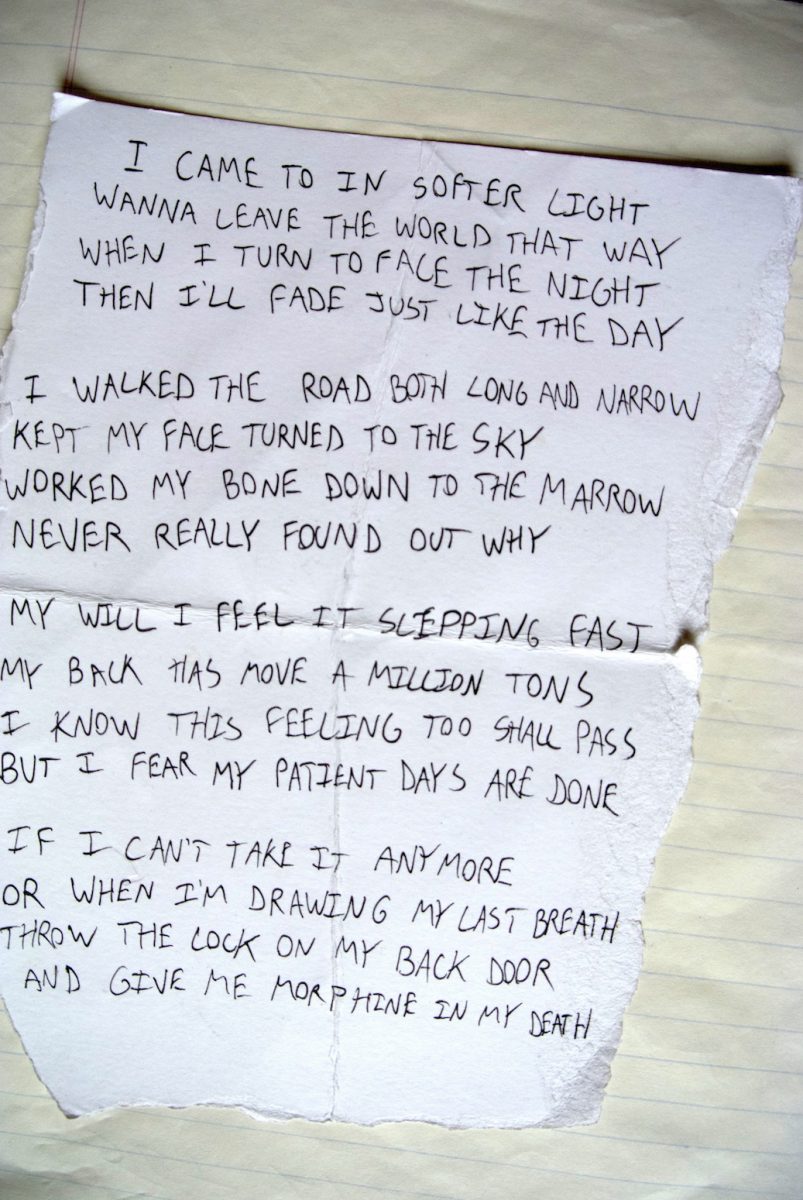 I CAME TO IN SOFTER LIGHT
WANNA LEAVE THE WORLD THAT WAY
WHEN I TURN TO FACE THE NIGHT
THEN I'LL FADE JUST LIKE THE DAY
I WALKED THE ROAD BOTH LONG AND NARROW
KEPT MY FACE TURNED TO THE SKY
WORKED MY BONE DOWN TO THE MARROW
NEVER REALLY FOUND OUT WHY
MY WILL I FEEL IT SLEPPING FAST
MY BACK HAS MOVE A MILLION TONS
I KNOW THIS FEELING TOO SHALL PASS
BUT I FEAR MY PATIENT DAYS ARE DONE
IF I CAN'T TAKE IT ANYMORE
OR WHEN I'M DRAWING MY LAST BREATH
THROW THE LOCK ON MY BACK DOOR
AND GIVE ME MORPHINE IN MY DEATH